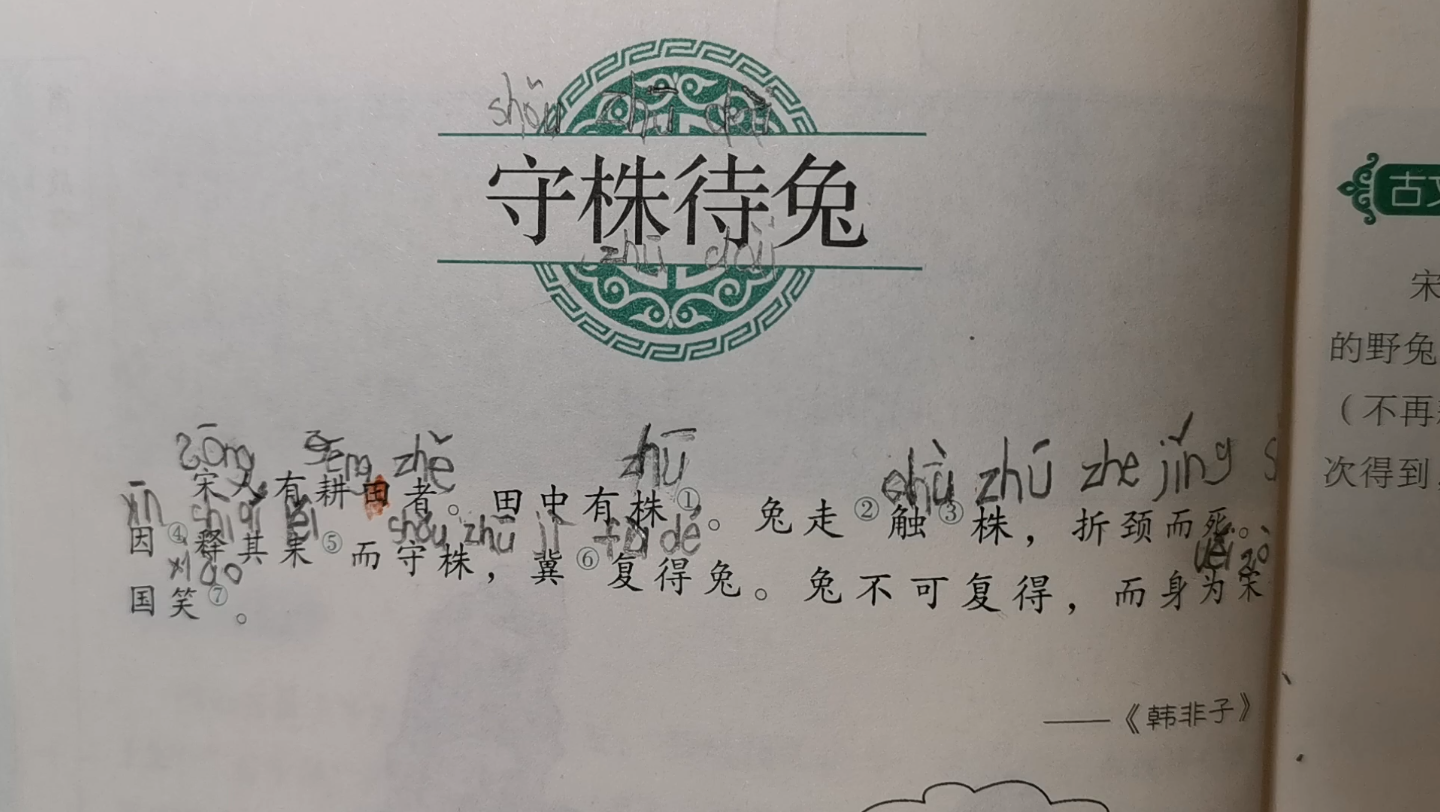 shǒu zhū dài
守株待兔
zhū dài
sōng gēng zhě zhū chù zhū zhe jǐng
宋人有耕田者。田中有株①。兔走②触③株，折颈而死。
yīn shì qí lěi shǒu zhū jì fù dé
因④释其耒⑤而守株，冀⑥复得兔。兔不可复得，而身为宋
xiào
国笑⑦。
——《韩非子》
古文
宋
的野兔
（不再
次得到，